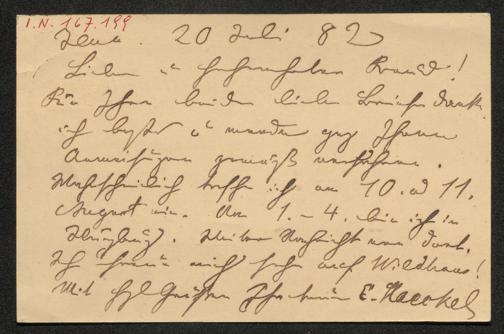 I.N. 167.199
Jena. 20 Juli 82
Lieber u hochverehrter Freund!
Für Ihre beiden lieben Briefe danke
ich bestens u werde ganz Ihren
Anweisungen gemäß verfahren.
Wahrscheinlich treffe ich am 10. od 11.
August ein. Am 1. – 4. bin ich in
Würzburg. Weitere Nachricht von dort.
Ich freue mich sehr auf Wildhaus!
Mit hzl Grüßen Ihr treuer E. Haeckel